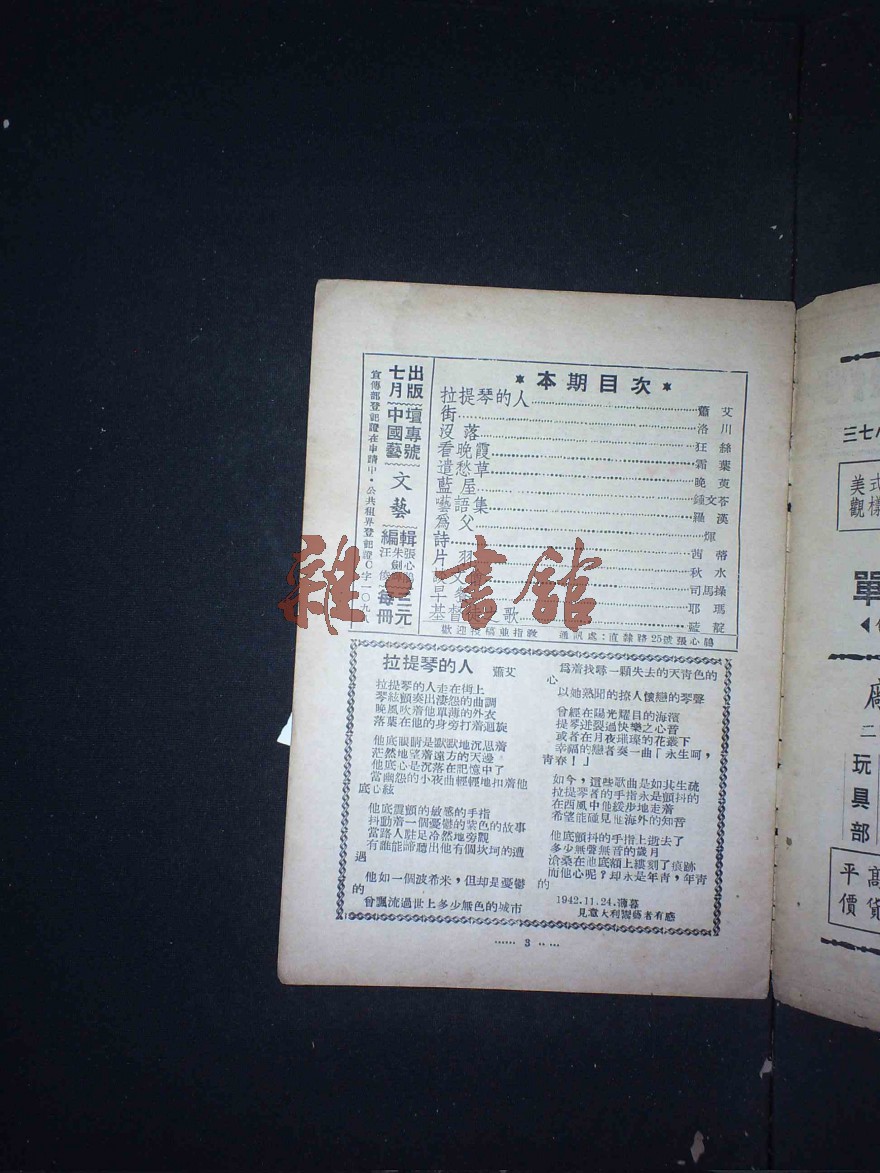 * 本期目次 *
拉提琴的人 蕭艾
街 洛川
沒落 狂絲
看晚霞 霜葉
遣愁草 晚萸
藍屋 鍾文苓
囈語集 羅漢
爲父 煇
詩 茜蒂
片 秋水
司馬操
早 耶瑪
基督徒之歌 藍靛
歡迎投稿並指敎 通訊處:直隸路25號張心鵑
出版
七月
中國藝
壇專號
文藝
編輯
張心
朱劍
汪俊
每冊
三元
宣傳部登記證在申請中·公共租界登記證C字一〇九
拉提琴的人 蕭艾
拉提琴的人走在街上
琴絃顫奏出淒怨的曲調
晚風吹着他單薄的外衣
落葉在他的身旁打着迴旋
他底眼睛是默默地沉思着
茫然地望着遠方的天邊
他底心是沉落在記憶中了
當幽怨的小夜曲輕輕地扣着他
底心絃
他底震顫的敏感的手指
抖動着一個憂鬱的紫色的故事
當路人駐足冷然地旁觀
有誰能諦聽出他有個坎坷的遭
遇
他如一個波希米,但却是憂鬱
的
曾飄流過世上多少無色的城市
爲着找尋一顆失去的天青色的
心
以她熟聞的撩人懷戀的琴聲
曾經在陽光耀目的海濱
提琴迸裂過快樂之心音
或者在月夜璀璨的花叢下
幸福的戀者奏一曲「永生呵,
青春!」
如今,這些歌曲是如其生疏
拉提琴者的手指永是顫抖的
在西風中他緩步地走着
希望能碰見他海外的知音
他底顫抖的手指上逝去了
多少無聲無音的歲月
滄桑在他底額上縷刻了痕跡
而他心呢?却永是年靑,年靑
的
1942.11.24.薄暮
見意大利鬻藝者有感
…… 3 ……
雜·書館
三七八
美式
觀樣
單
廠
二
玩具部
平高
價貨